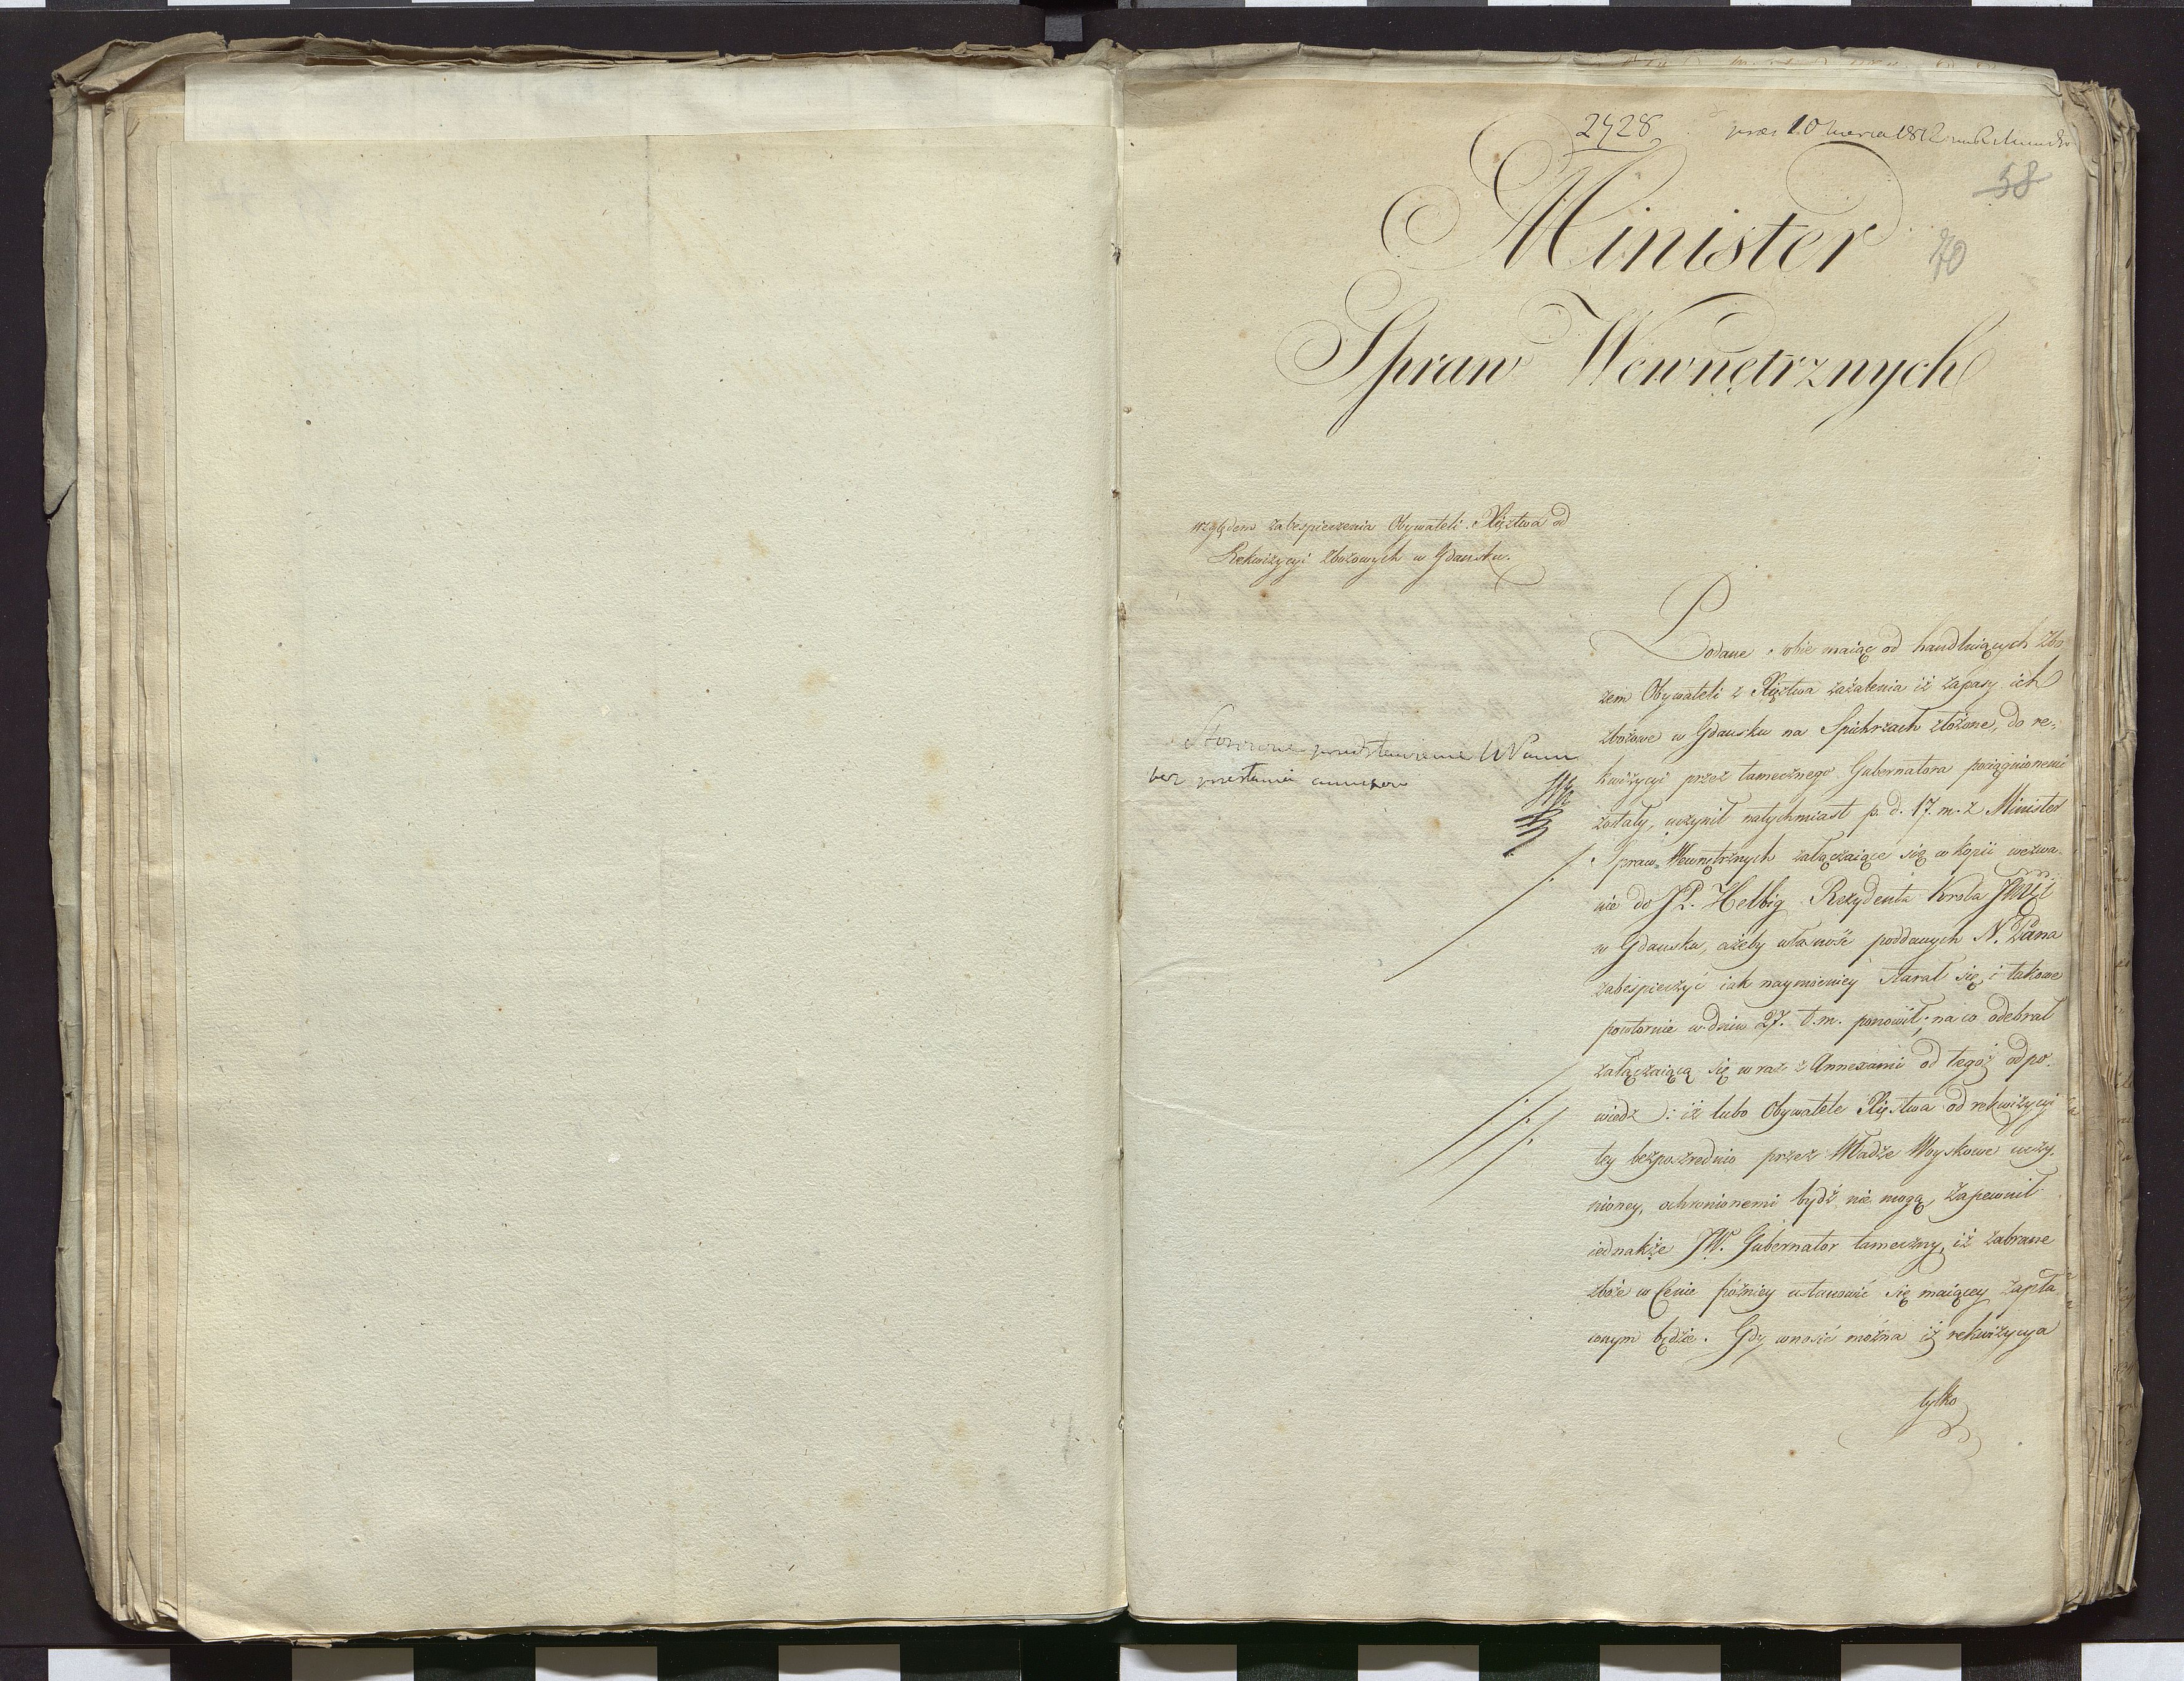 2428
10 Marca 1812
58
70
Minister
Spraw Wewnętrznych
względem zabespieczenia Obywateli Xięztwa od
Rekwizycyi zbożowych w Gdańsku.
Stosowne przedstawienie
bez przesłania annexow
Podane sobie maiąc od handluiących zbo
żem Obywateli z Xięztwa zażalenia iż zapasy ich
zbożowe w Gdańsku na Spichrzach złożone, do re-
kwizycyi przez tamecznego Gubernatora pociągnionemi
zostały, uczynił natychmiast p. d. 17. m. z Minister
Spraw Wewnętrznych załączaiące się w kopii wezwa-
nie do JP. Helbig Rezydenta Krola JMci
w Gdańsku, ażeby własność poddanych N. Pana
zabespieczyć iak naymocniey starał się, i takowe
powtornie w dniu 27. t. m. ponowił; na co odebrał
załączaiącą się wraz z Annexami od tegoż odpo-
wiedz: iż lubo Obywatele Xięstwa od rekwizycyi
tey bezpośrednio przez Władze Woyskowe uczy-
nioney, ochronionemi bydź nie mogą, zapewnił
iednakże JW. Gubernator tameczny, iż zabrane
zboże w Cenie poźniey ustanowić się maiącey zapła
conym będzie. Gdy wnosić można iż rekwizycya
tylko